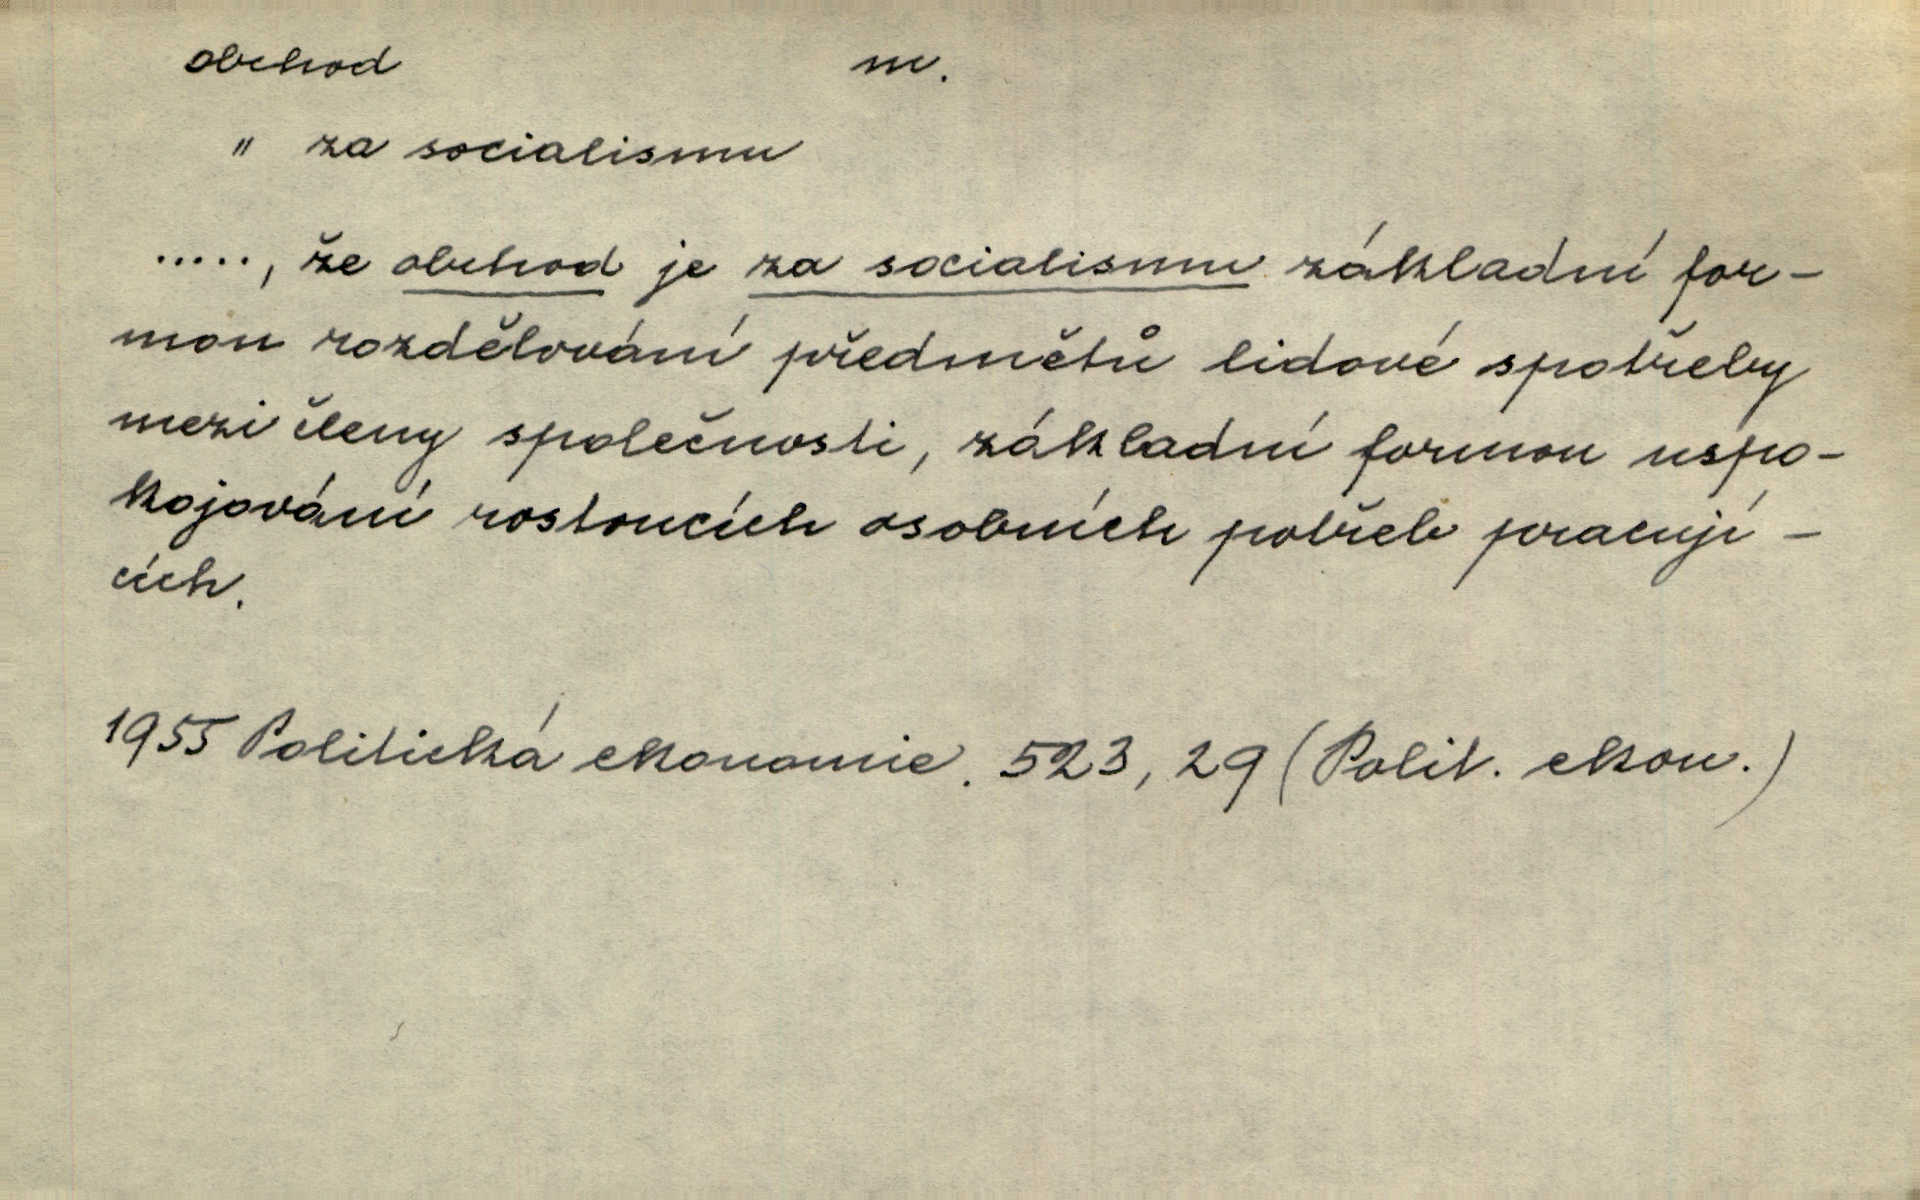 obchod m.
" za socialismu
....., že obchod je za socialismu základní for-
mou rozdělování předmětů lidové spotřeby
mezi členy společnosti, základní formou uspo-
kojování rostoucích osobních potřeb pracují-
cích.
1955 Politická ekonomie. 523, 29 (Polit. ekon.)